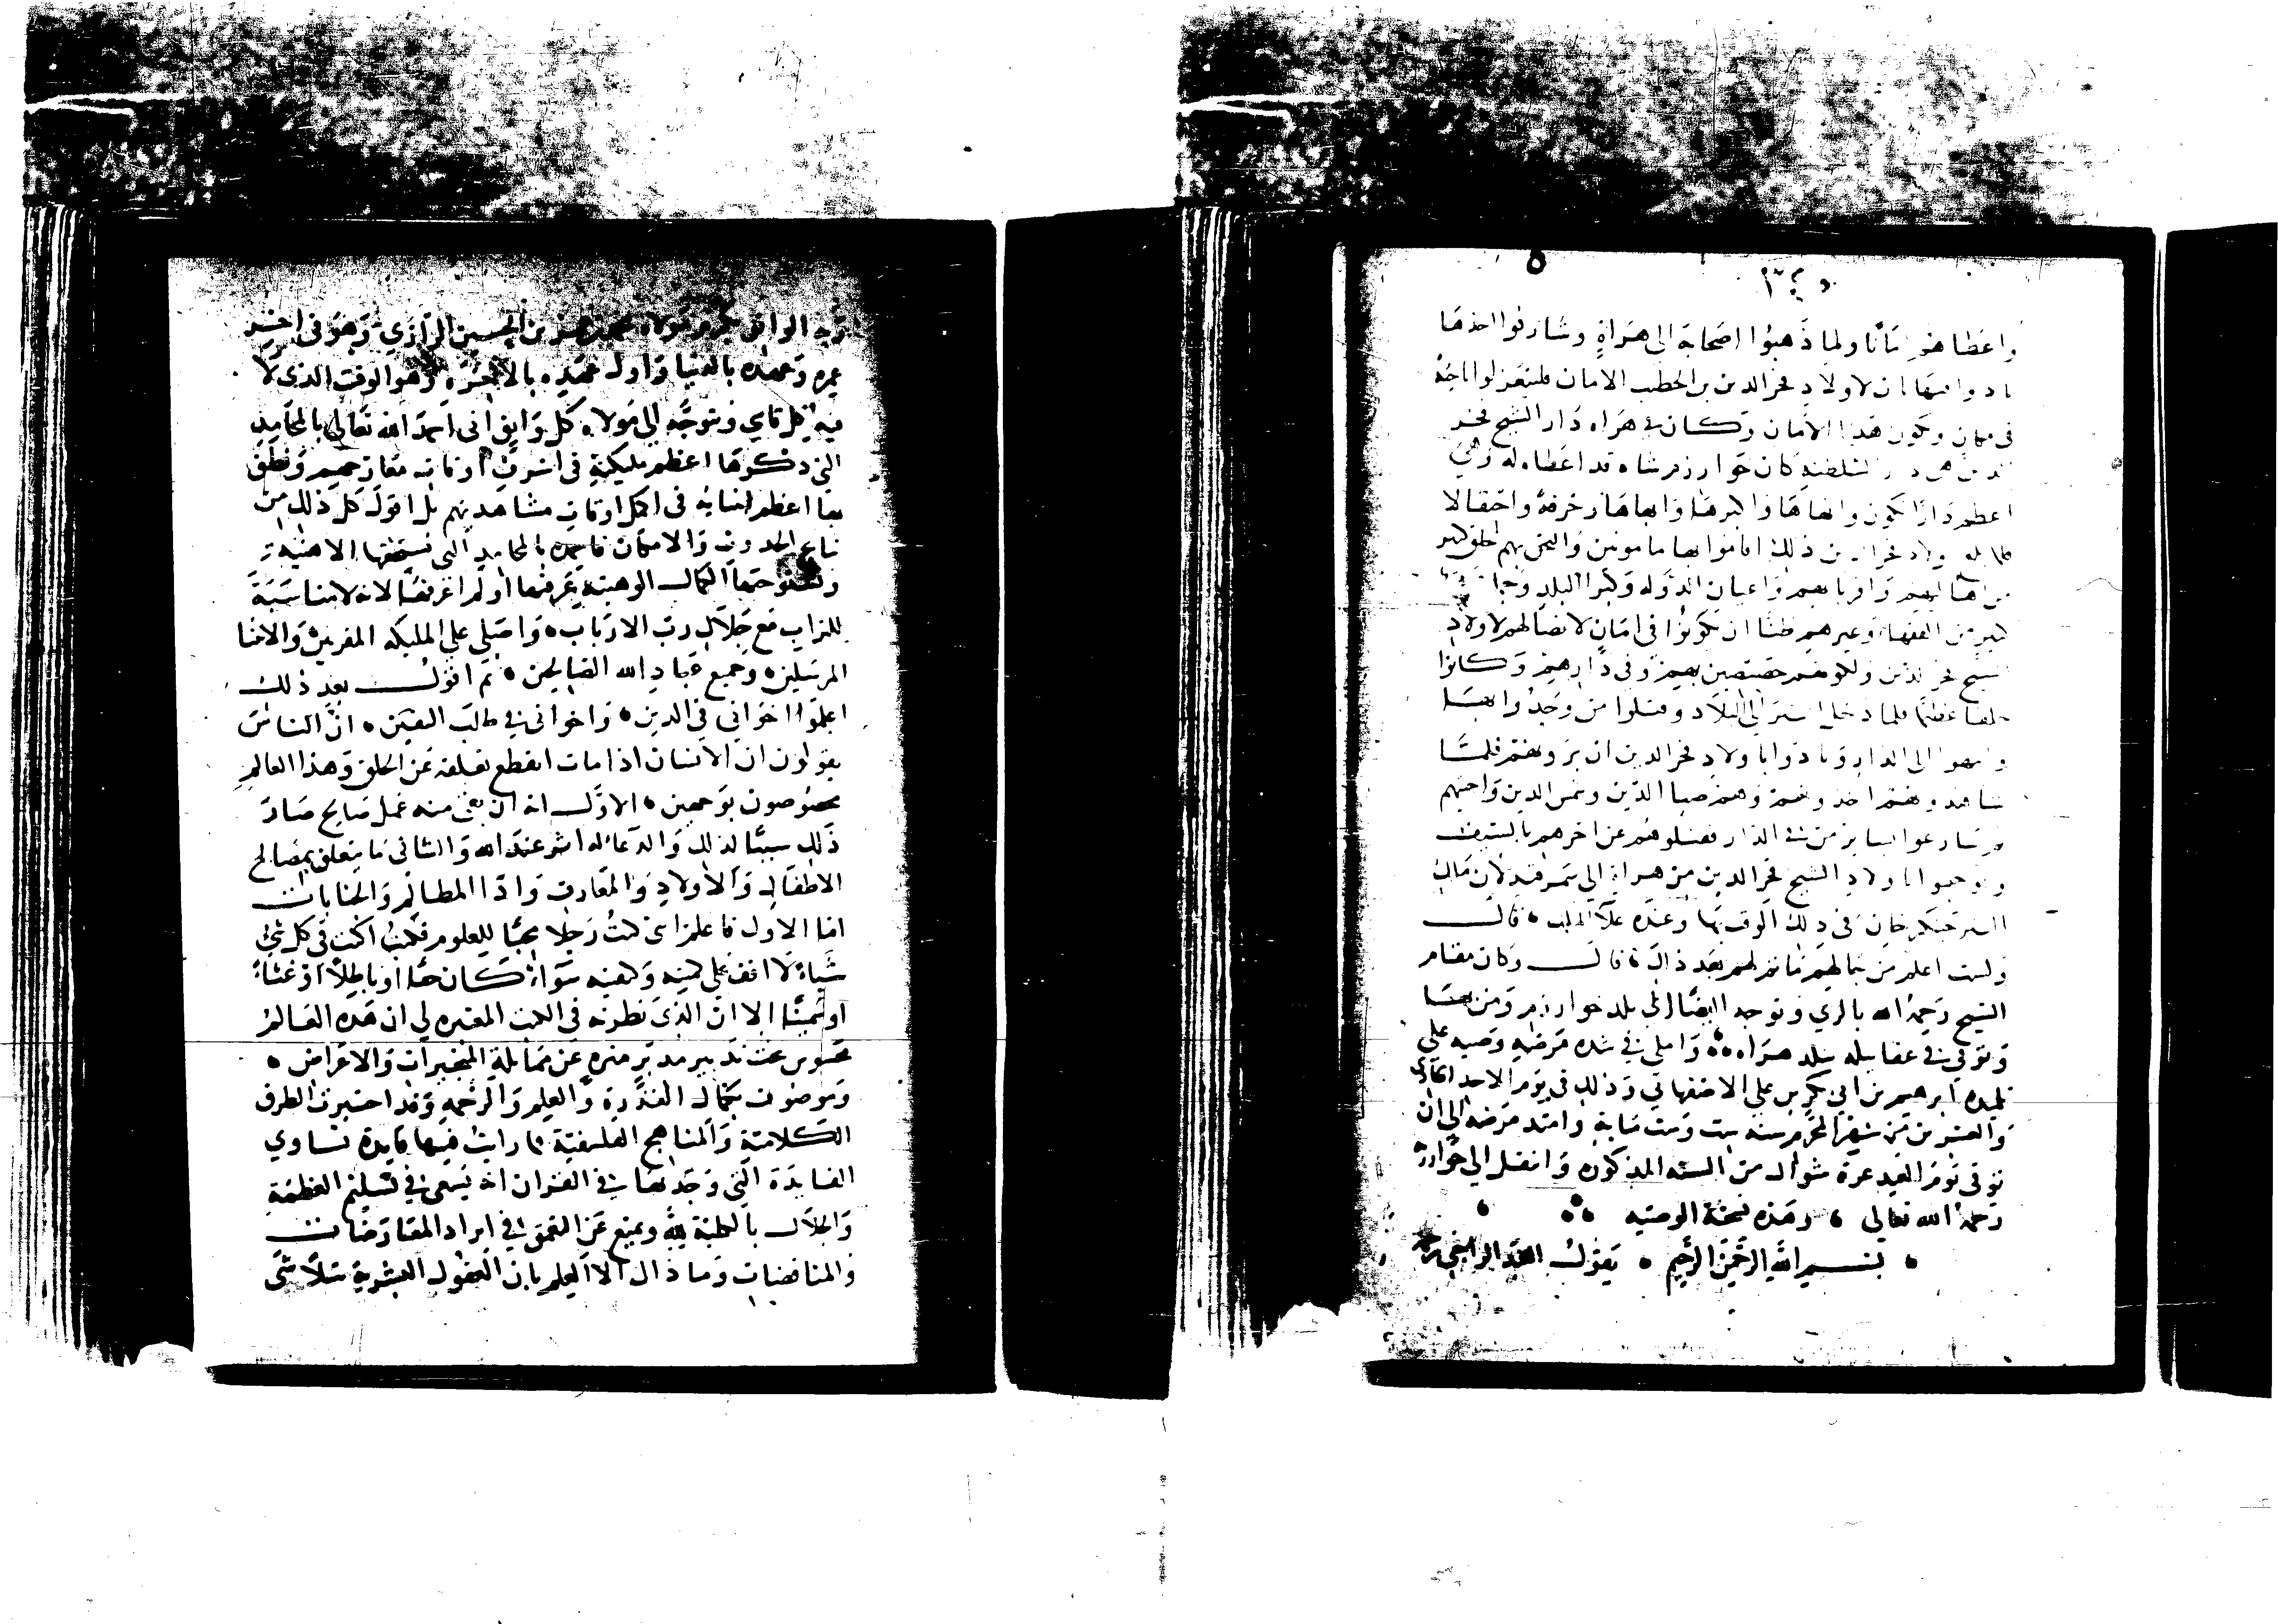 واعطاهم امانا ولما ذهبوا اصحابه الى هراة وشارفوا اخذها
نادوا فيها ان لاولاد فخر الدين بن الخطيب الامان فليتعزلوا ناحية
في مكان ويكون هذا الامان وكان في هراه دار الشيخ فخر
الدين هي دار السلطنة كان خوارزم شاه قد اعطاه له وهي
اعظم دارا تكون وابهاها واكبرها وابهاها زخرفة واحتفالا
فلما بلغ اولاد فخر الدين ذلك اقاموا بها مامونين والتحق بهم خلق كثير
من اهاليهم واقربايهم واعيان الدوله وكبرا البلد وجماعة
كثير من الفقها وغيرهم ظنا ان يكونوا في امان لاتصالهم لاولاد
الشيخ فخر الدين ولكونهم خصيصين بهم وفي دارهم وكانوا
خلقا عظيما فلما دخل التتر الى البلاد وقتلوا من وجدوا بها
وانتهوا الى الدار ونادوا باولاد فخر الدين ان يروهم فلما
شاهدوهم اخذوهم وهم ضيا الدين وشمس الدين واختهم
ثم شرعوا بساير من في الدار فقتلوهم عن اخرهم بالسيف
وتوجهوا باولاد الشيخ فخر الدين من هراة الى سمرقند لان ملك
التتر جنكز خان في ذلك الوقت بها وعنده علا الملك قال
ولست اعلم من حالهم ما تم لهم بعد ذلك قال وكان مقام
الشيخ رحمه الله بالري وتوجه ايضا الى بلد خوارزم ومرض بها
وتوفي في عقابيله ببلد هراه واملى في شده مرضه وصيه على
تلميذه ابرهيم بن ابي بكر بن علي الاصفهاني وذلك في يوم الاحد الحادي
والعشرين من شهر المحرم سنه ست وست ماية وامتد مرضه الى ان
توفي يوم العيد غرة شوال من السنه المذكوره وانتقل الى جوار ربه
رحمه الله تعالى وهذه نسخة الوصيه
بسم الله الرحمن الرحيم يقول العبد الراجي رحمة
ربه الواثق بكرم مولاه محمد بن عمر بن الحسين الرازي وهو في اخر
عمره وعهده بالدنيا واول عهده بالاخرة وهو الوقت الذي يلين
فيه كل قاس ويتوجه الى مولاه كل وابق اني احمد الله تعالى بالمحامد
التي ذكرها اعظم مليكته في اشرف اوقات معارجهم ونطق
بها اعظم انبيايه في اكمل اوقات مشاهدتهم بل اقول كل ذلك من
نتايج الحدوث والامكان فاحمده بالمحامد التي تستحقها الاهيته
ويستوجبها لكمال الوهيته عرفتها او لم اعرفها لانه لا مناسبة
للتراب مع جلال رب الارباب واصلي على المليكه المقربين والانبيا
المرسلين وجميع عباد الله الصالحين ثم اقول بعد ذلك
اعلموا اخواني في الدين واخواني في طلب اليقين ان الناس
يقولون ان الانسان اذا مات انقطع تعلقه عن الخلق وهذا العالم
مخصوصون بوجهين الاول انه ان بقي منه عمل صالح صار
ذلك سببا لذلك والدعا له اثر عند الله والثاني ما يتعلق بمصالح
الاطفال والاولاد والمعارف وادا المظالم والجنايات
اما الاول فاعلم انني كنت رجلا محبا للعلوم فكنت اكتب في كل شي
شيا لا اقف على كميته وكيفيته سوآ كان حقا او باطلا او غثا
او ثمينا الا ان الذي نظرته في الكتب المعتبره لي ان هذه العالم
محسوس تحت تدبير مدبر منزه عن مماثلة المتحيزات والاعراض
وموصوف بكمال القدرة والعلم والرحمه وقد اختبرت الطرق
الكلامية والمناهج الفلسفية فما رايت فيها فايدة تساوي
الفايدة التي وجدتها في القران انه يسعى في تسليم العظمة
والجلال بالكلية لله ويمنع عن التعمق في ايراد المعارضات
والمناقضات وما ذاك الا العلم بان العقول البشرية تتلاشى